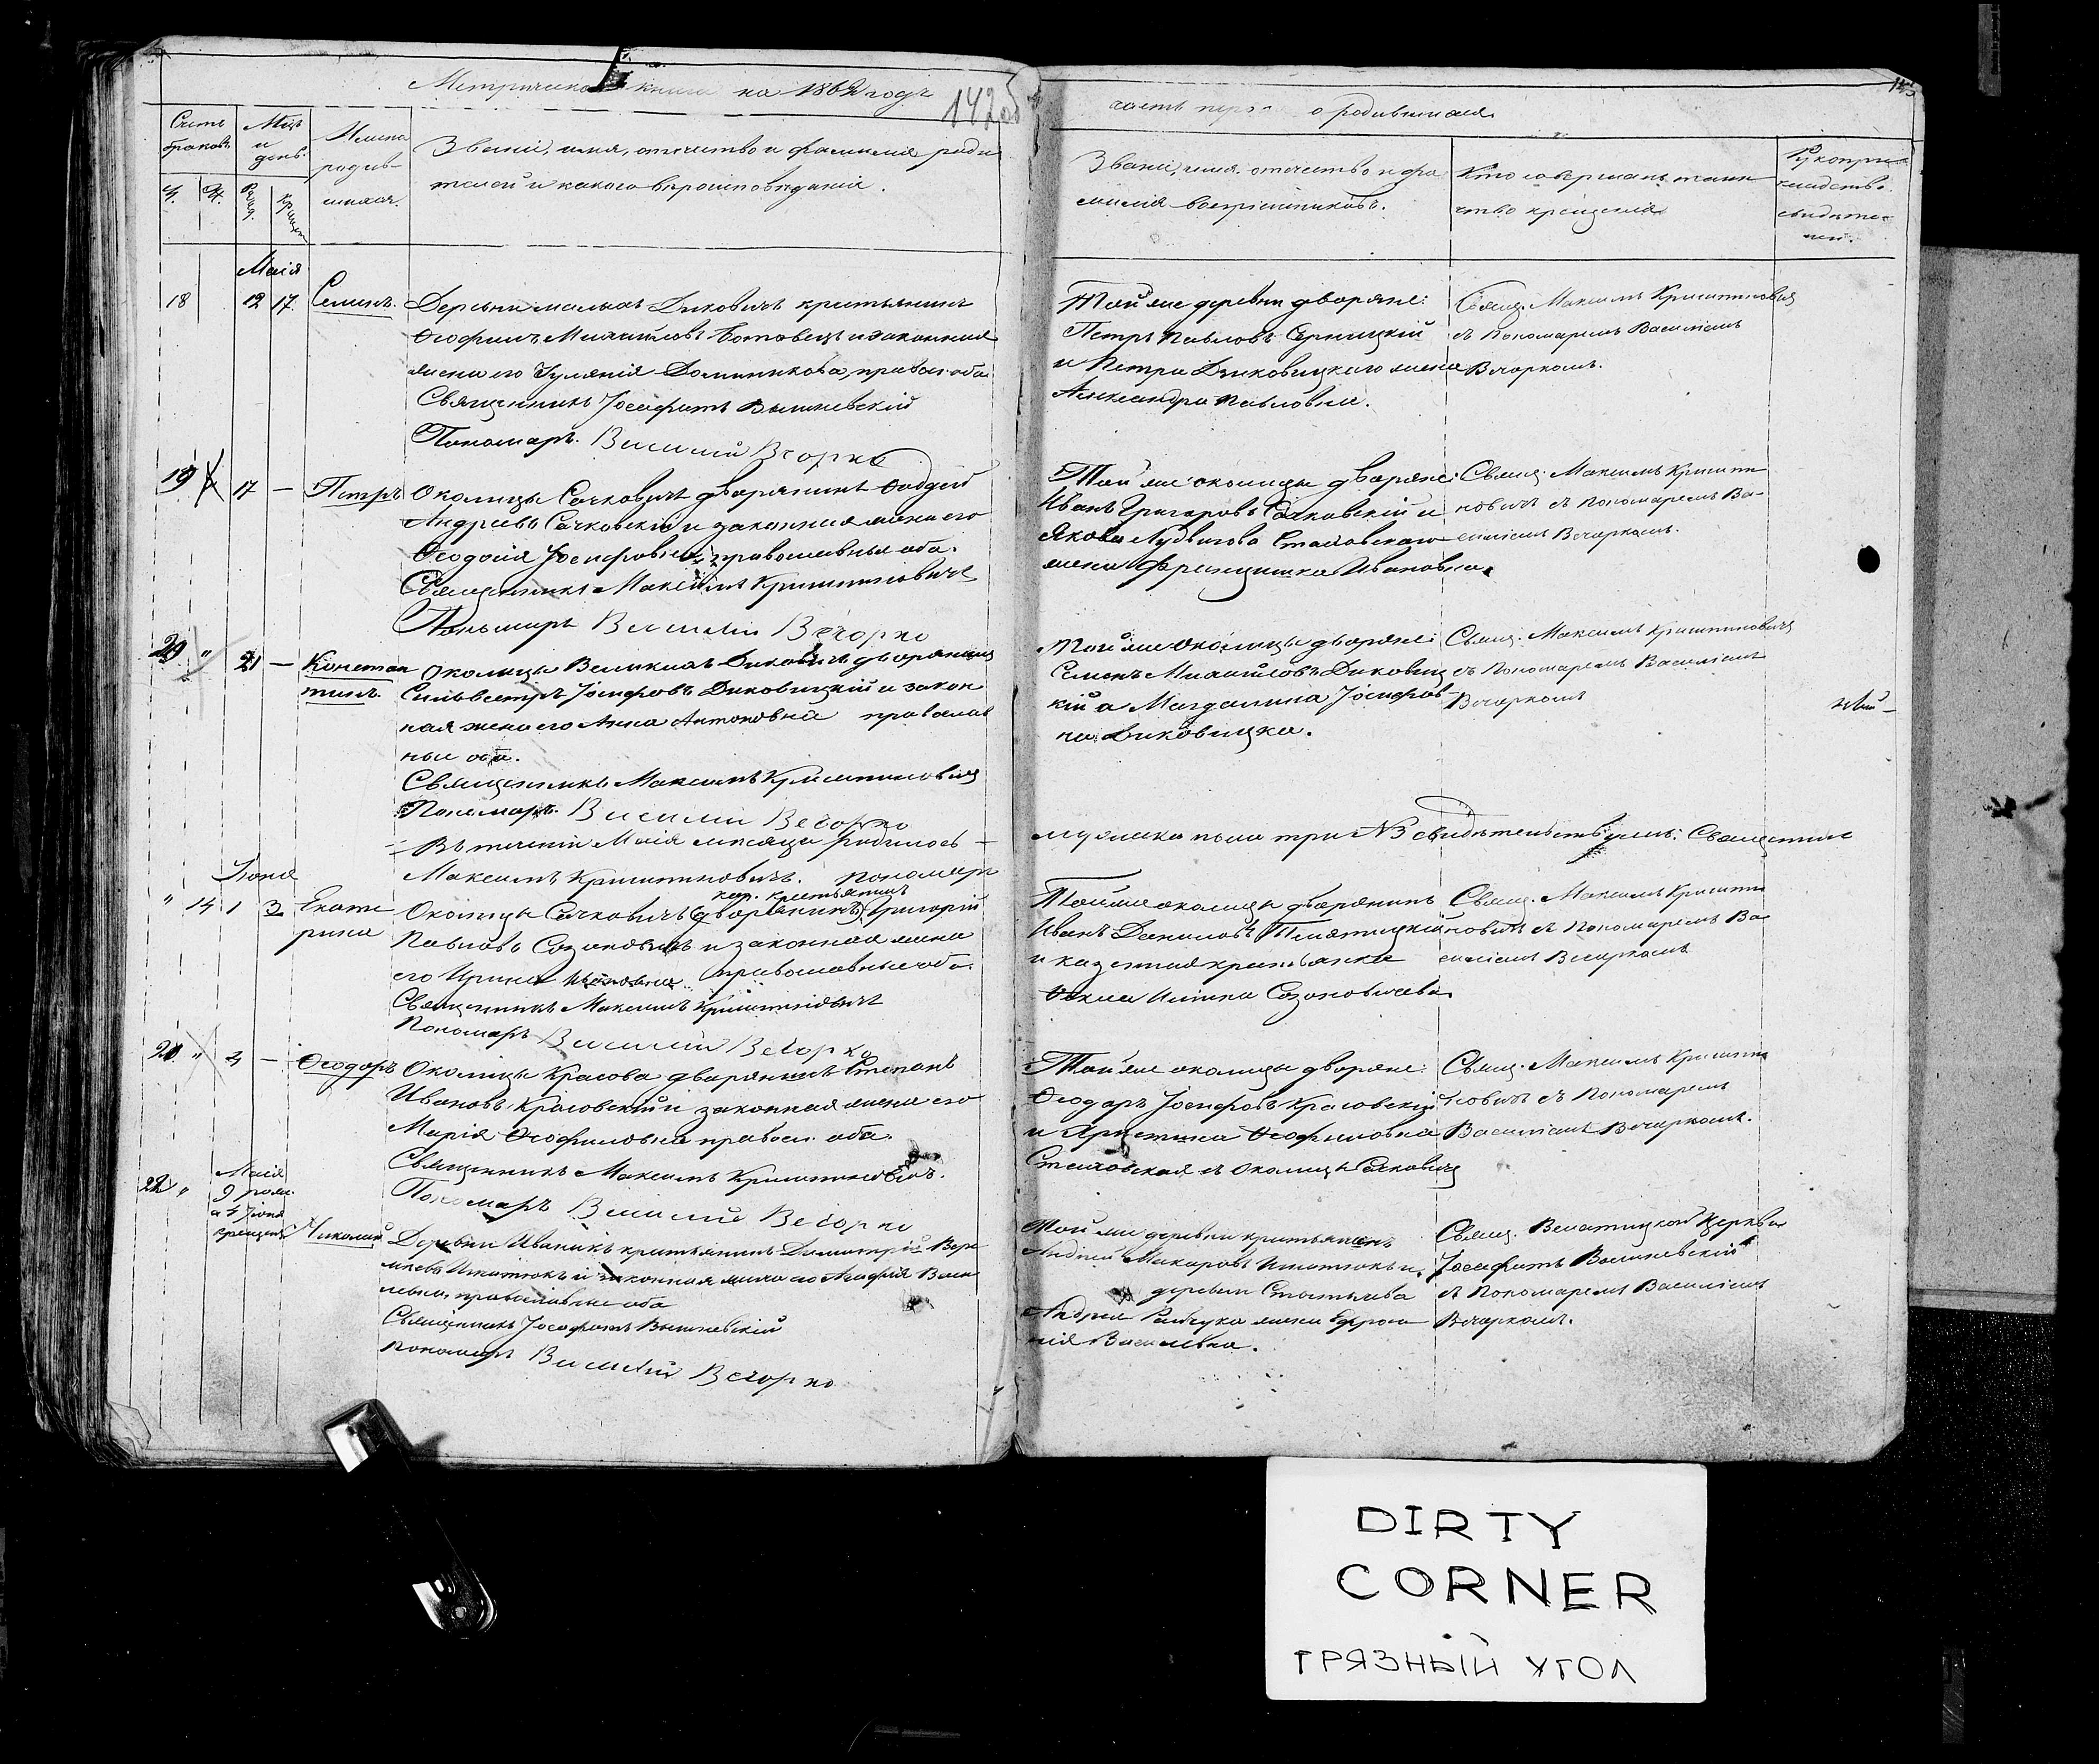 Метрическая книга на 1862 годъ
142об
часть перв о родившихся
Счетъ
Мцъ
и
день.
Имена
родив-
шихся.
Званіе, имя, отчество и фамилія роди
телей и какого вѣроисповѣданія.
Званіе, имя, отчество и фа
милія воспріемниковъ.
Кто совершалъ таин
ство крещенія
Рукопри
кладство
свидѣте-
лей.
Маія
18 12 17 Семенъ.
Деревни малыхъ Диковичъ крестьянинъ
Ѳеофилъ Михайловъ и законная
жена его Доминикова, правос. оба.
Священникъ Іосафатъ Вышневскій
Пономарь Василій Вѣчорко
Той же деревни дворяне:
Петръ Павловъ
и Петра Диковицкаго жена
Александра Павлова.
Свящ. Максимъ Криштиновичъ
съ Пономаремъ Василіемъ
Вечоркомъ.
19 17 — Петръ
Околицы Сачковичъ дворянинъ
Андреевъ Сачковскій и законная жена его
Ѳеодосія Іосифовна, православные оба.
Священникъ Максимъ Криштиновичъ
Пономарь Василій Вечорко
Той же околицы дворяне:
Иванъ Григоровъ Сачковскій и
Якова Людвигова Стаховскаго
жена Францишка Иванова.
Свящ. Максимъ Кришти
новичъ съ Пономаремъ Ва-
силіемъ Вечоркомъ.
20 " 21 — Констан
тинъ.
Околицы Великихъ Диковичъ дворянинъ
Сильвестръ Іосифовъ Диковицкій и закон
ная жена его Анна Антоновна православ
ные оба.
Священникъ Максимъ Криштиновичъ
Пономарь Василій Вечорко
Той же околицы дворяне:
Семенъ Михайловъ Диковиц
кій а Магдалина Іосифов
на Диковицка.
Свящ. Максимъ Криштиновичъ
съ Пономаремъ Василіемъ
Вечоркомъ
Въ теченіи Маія мѣсяца родилось
мужеска пола три №3 свидѣтельствуемъ: Священникъ
Максимъ Криштиновичъ. Пономарь
Іюня
" 14 1 3 Екате
рина
каз. крестьянинъ
Околицы Сачковичъ (дворянинъ) Григорій
Павловъ Созоновичъ и законная жена
его Ирина православные оба.
Священникъ Максимъ Криштиновичъ
Пономарь Василій Вечорко
Той же околицы дворянинъ
Иванъ Даниловъ
и казенная крестьянка
Созоновичева.
Свящ. Максимъ Кришти
новичъ съ Пономаремъ Ва
силіемъ Вечоркомъ
21 " 4 — Ѳеодоръ
Околицы Красова дворянинъ Степанъ
Ивановъ Красовскій и законная жена его
Марія Ѳеофиловна правосл. оба.
Священникъ Максимъ Криштиновичъ.
Пономарь Василій Вечорко
Той же околицы дворяне:
Ѳеодоръ Іосифовъ Красовскій
и Христина Ѳеофиловна
Стаховская съ околицы Сачковичъ
Свящ. Максимъ Кришти
новичъ съ Пономаремъ
Василіемъ Вечоркомъ.
22 "
Маія
9 рожд.
а 4 Іюня
крещенъ Николай
Деревни Иваникъ крестьянинъ Димитрій
Игнатюкъ и законная жена его Агафія Васи
льева, православные оба
Священникъ Іосафатъ Вышневскій
Пономарь Василій Вечорко
Той же деревни крестьянинъ
Андрей Макаровъ Игнатюкъ и
деревни
Андрея жена Евфро
нія Васильевна.
Свящ. Церкви
Іосафатъ Вышневскій
съ Пономаремъ Василіемъ
Вечоркомъ.
DIRTY
CORNER
ГРЯЗНЫЙ УГОЛ